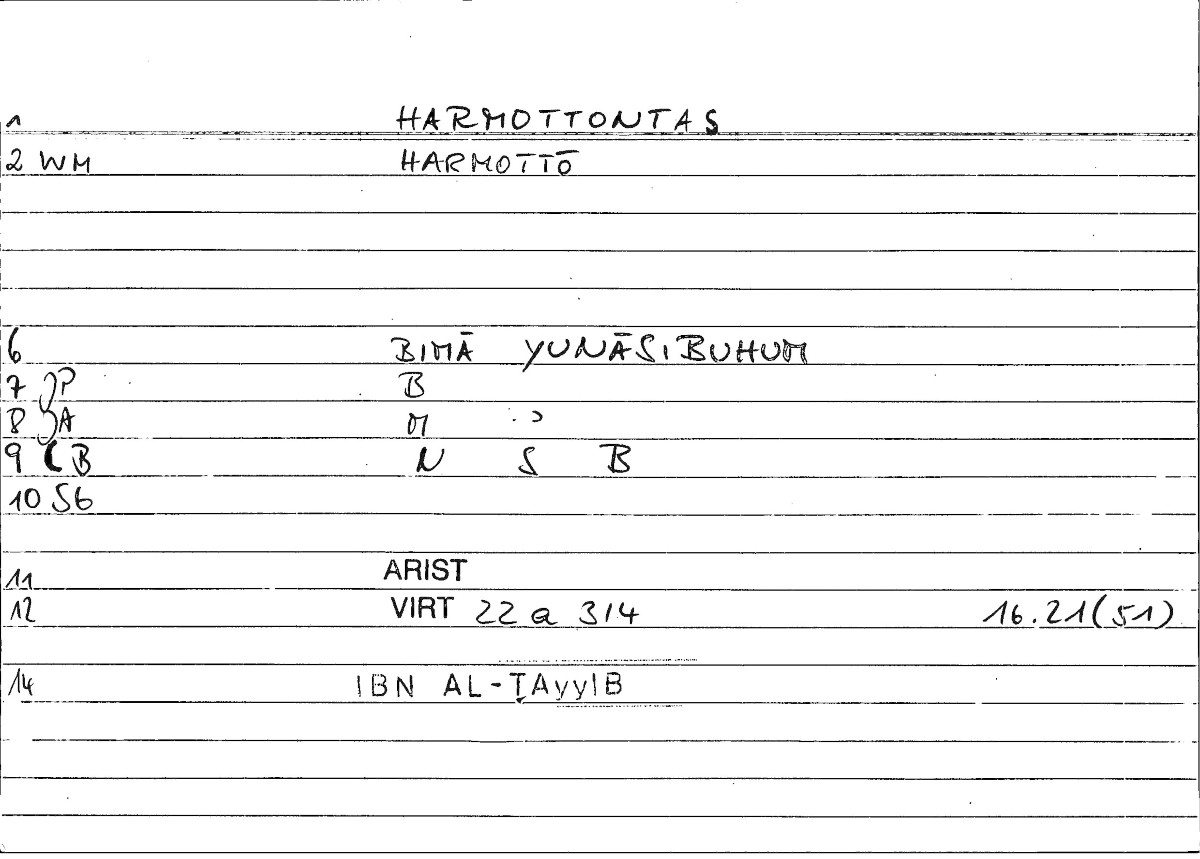 1 HARMOTTONTAS
2 WM HARMOTTŌ
6 BIMĀ YUNĀSIBUHUM
7 P B
8 A M
9 B N S B
10 Sb
11 ARIST
12 VIRT 22 a 3/4 16.21(51)
14 IBN AL-ṬAyyIB